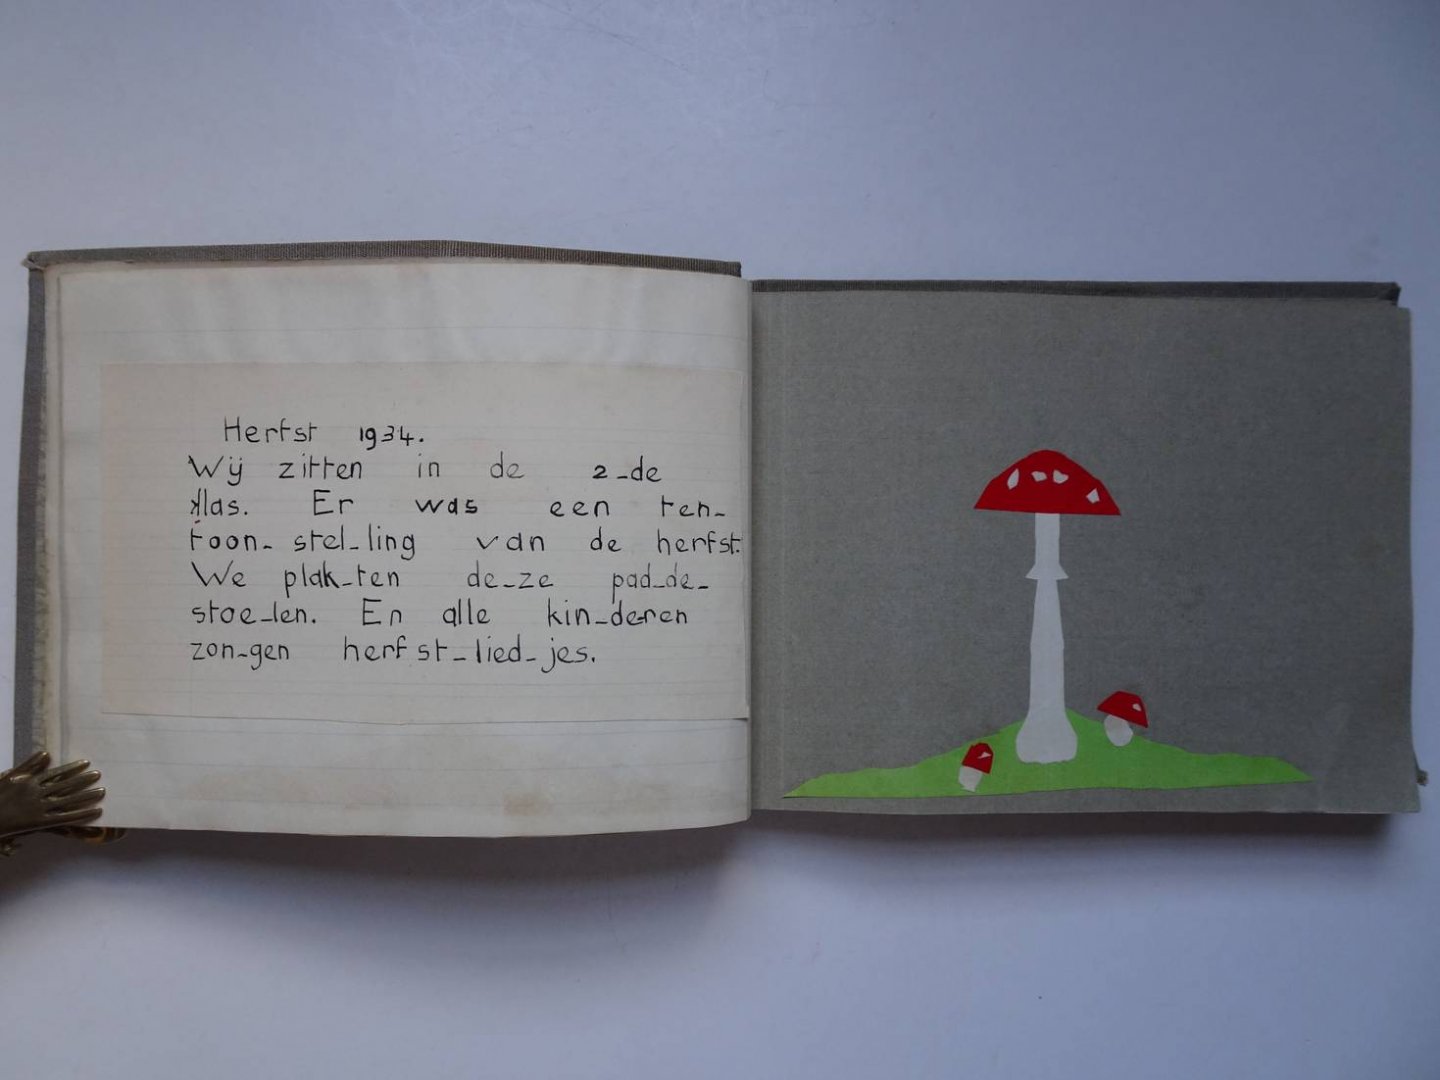 Herfst 1934.
Wij zitten in de 2_de
klas. Er was een ten_
toon_ stel_ling van de herfst.
We plak_ten de_ze pad_de_
stoe_len. En alle kin_deren
zon_gen herfst_lied_jes.